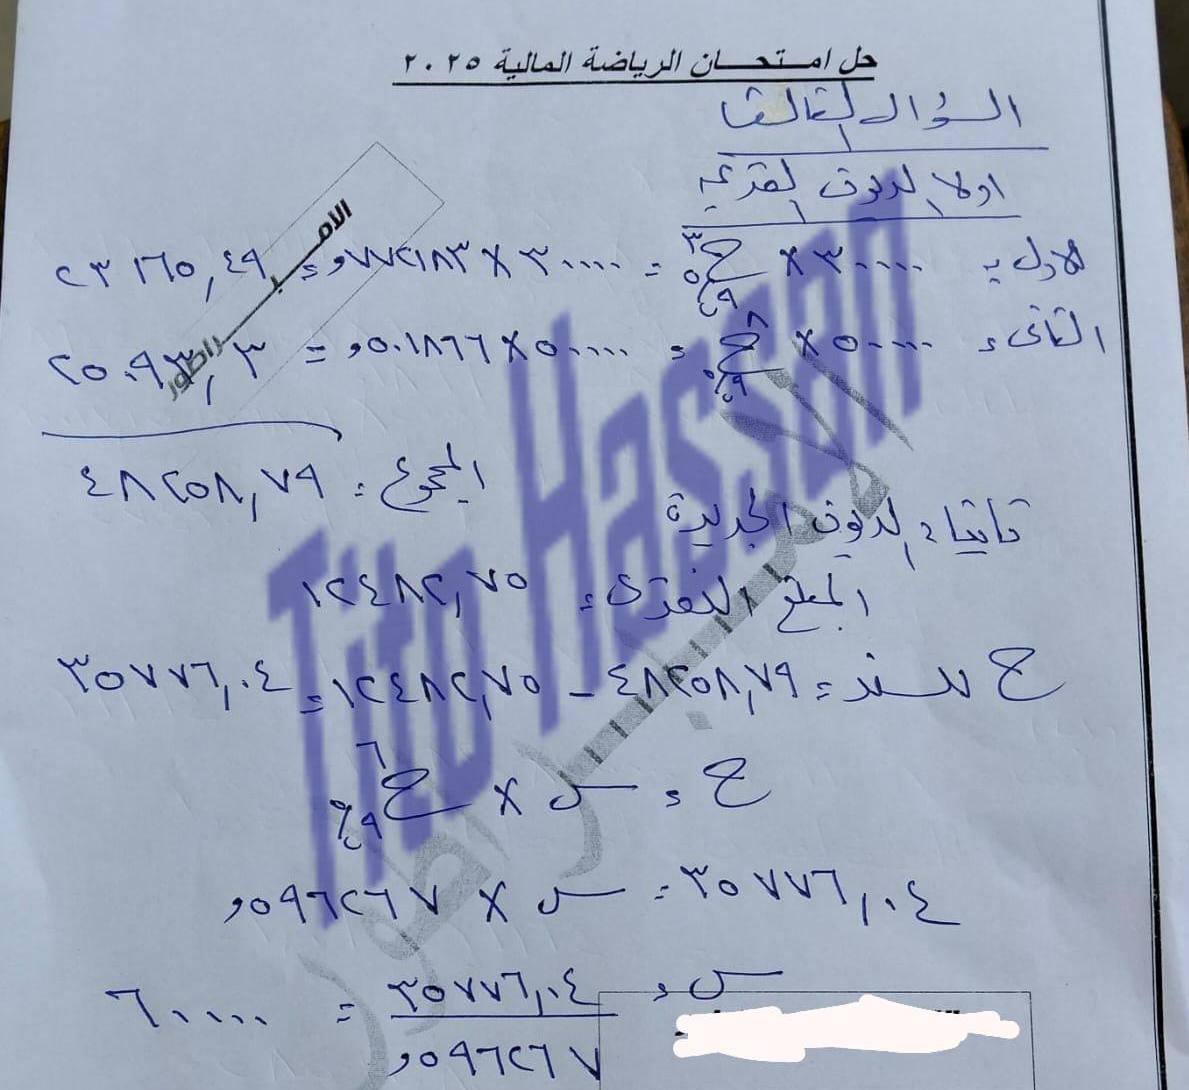 حل امتحان الرياضة المالية ٢٠٢٥
السؤال الثالث
اولا الديون القديمة
الاول = ٣٠٠٠٠ × ح٣ ٩٪ = ٣٠٠٠٠ × ٧٧٢١٨٣, = ٢٣١٦٥,٤٩
الثاني = ٥٠٠٠٠ × ح٨ ٩٪ = ٥٠٠٠٠ × ٥٠١٨٦٦, = ٢٥٠٩٣,٣
المجموع = ٤٨٢٥٨,٧٩
ثانيا: الديون الجديدة
المبلغ النقدي = ١٢٤٨٢,٧٥
ح للسند = ٤٨٢٥٨,٧٩ - ١٢٤٨٢,٧٥ = ٣٥٧٧٦,٠٤
ح = س × ح٦ ٩٪
٣٥٧٧٦,٠٤ = س × ٥٩٦٢٦٧,
س = ٣٥٧٧٦,٠٤ / ٥٩٦٢٦٧, = ٦٠٠٠٠
Tito Hassan